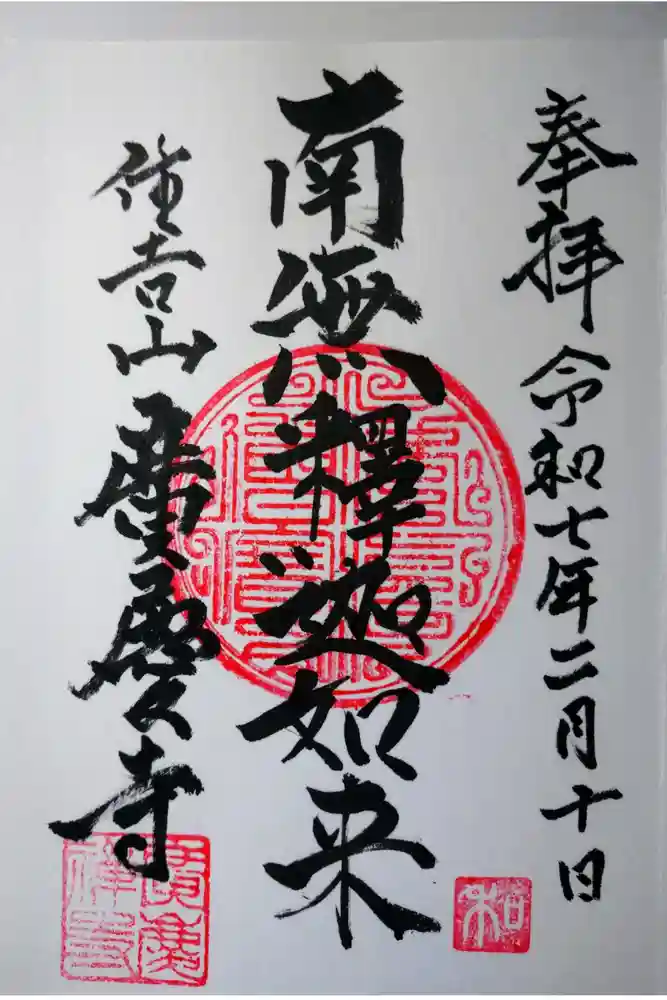 奉拝 令和七年二月十日
南無釋迦如来
住吉山 廣慶寺
廣慶
禪寺